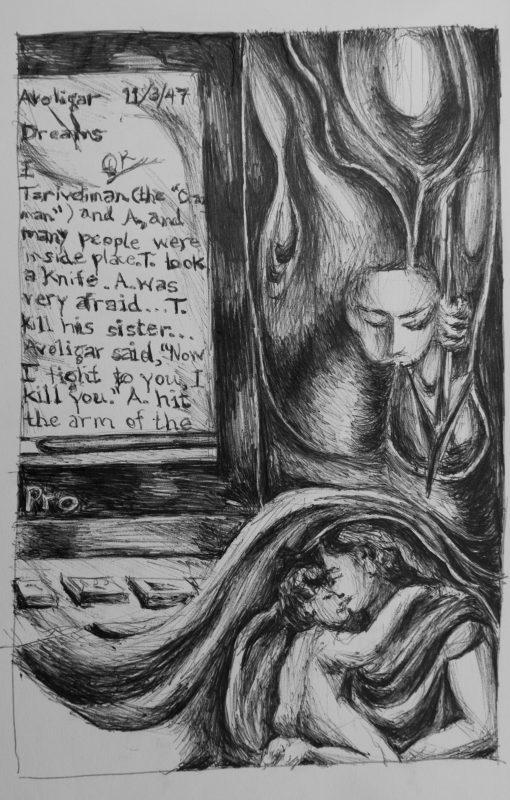 Avoligar 11/3/47
Dreams
I OR
Tarivdiman (the "Cra
man") and A, and
many people were
inside place. T. took
a knife. A. was
very afraid... T.
kill his sister...
Avoligar said, "Now
I fight to you, I
kill you." A. hit
the arm of the
Pro